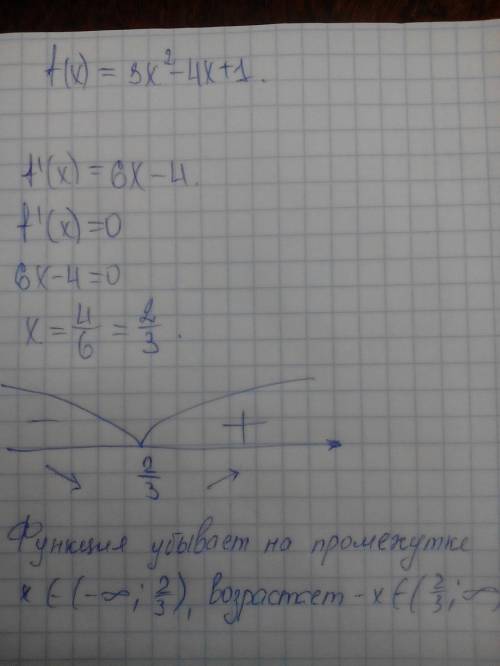 f(x) = 3x²-4x+1.
f'(x) = 6x-4.
f'(x)=0
6x-4=0
x = 4/6 = 2/3.
- +
2/3
Функция убывает на промежутке
x ∈ (-∞; 2/3), возрастает - x ∈ (2/3; ∞